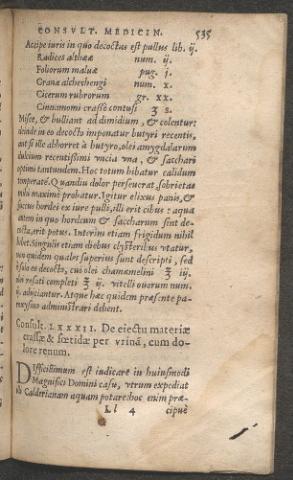 CONSVLT. MEDICIN. 535
Accipe iuris in quo decoctus est pullus lib. ij.
Radices althææ num. ij.
Foliorum maluæ pug. j.
Grana alchechengi num. x.
Cicerum rubrorum gr. xx.
Cinnamomi crassè contusi ʒ s.
Misce, & bulliant ad dimidium, & colentur:
deinde in eo decocto imponatur butyri recentis,
aut si ille abhorret à butyro, olei amygdalarum
dulcium recentissimi vncia vna, & sacchari
optimi tantundem. Hoc totum bibatur calidum
temperatè. Quandiu dolor perseuerat, sobrietas
maximè probatur. Igitur elixus panis, &
hordei ex iure pulli, illi erit cibus: aqua
autem in quo hordeum & saccharum sint
cta, erit potus. Interim etiam frigidum nihil
bibet. Singulis etiam diebus clysteribus vtatur,
non quidem quales superius sunt descripti, sed
solo ex decocto, cui olei chamæmelini ℥ iij.
rosati completi ℥ ij. vitelli ouorum num.
ij. adijciantur. Atque hæc quidem præsente pa-
roxysmo administrari debent.
Consult. LXXXII. De eiectu materiæ
crassæ & fœtidæ per vrinã, cum do-
lore renum.
DIfficillimum est iudicare in huiusmodi
Magnifici Domini casu, vtrum expediat
Calderianam aquam potare: hoc enim præ-
Ll 4 cipuè